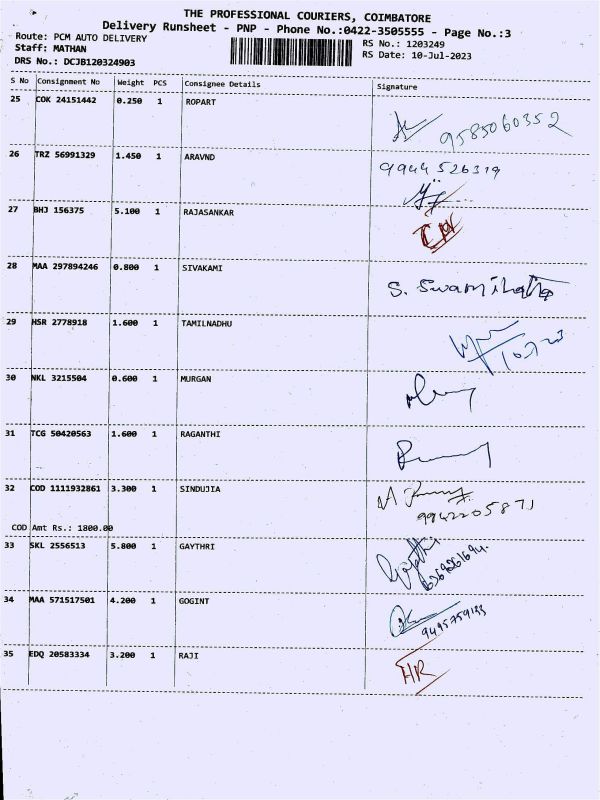 THE PROFESSIONAL COURIERS, COIMBATORE
Delivery Runsheet - PNP - Phone No.:0422-3505555 - Page No.:3
Route: PCM AUTO DELIVERY RS No.: 1203249
Staff: MATHAN RS Date: 10-Jul-2023
DRS No.: DCJB120324903
S No Consignment No Weight PCS Consignee Details Signature
25 COK 24151442 0.250 1 ROPART
9585060352
26 TRZ 56991329 1.450 1 ARAVND 9944 526319
27 BHJ 156375 5.100 1 RAJASANKAR
28 MAA 297894246 0.800 1 SIVAKAMI
S.
29 HSR 2778918 1.600 1 TAMILNADHU
30 NKL 3215504 0.600 1 MURGAN
31 TCG 50420563 1.600 1 RAGANTHI
32 COD 1111932861 3.300 1 SINDUJIA
9942205871
COD Amt Rs.: 1800.00
33 SKL 2556513 5.800 1 GAYTHRI
34 MAA 571517501 4.200 1 GOGINT
35 EDQ 20583334 3.200 1 RAJI HR